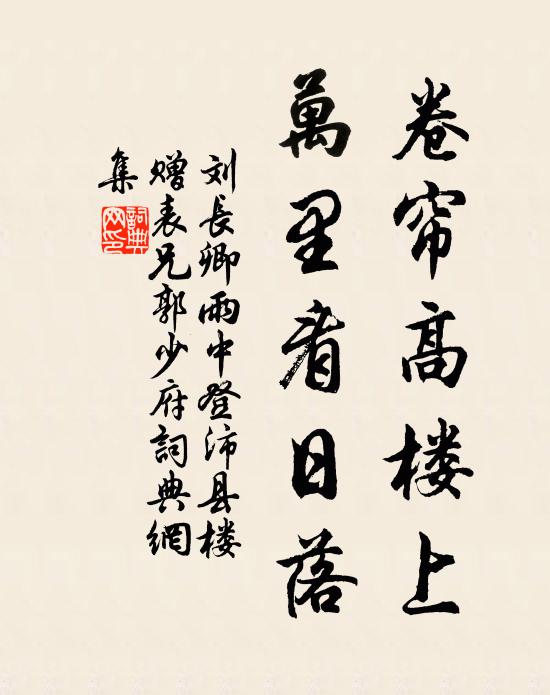 卷帘高楼上
萬里看日落
刘長卿雨中登沛县楼
赠表兄郭少府詞典網
集
詞典
网印